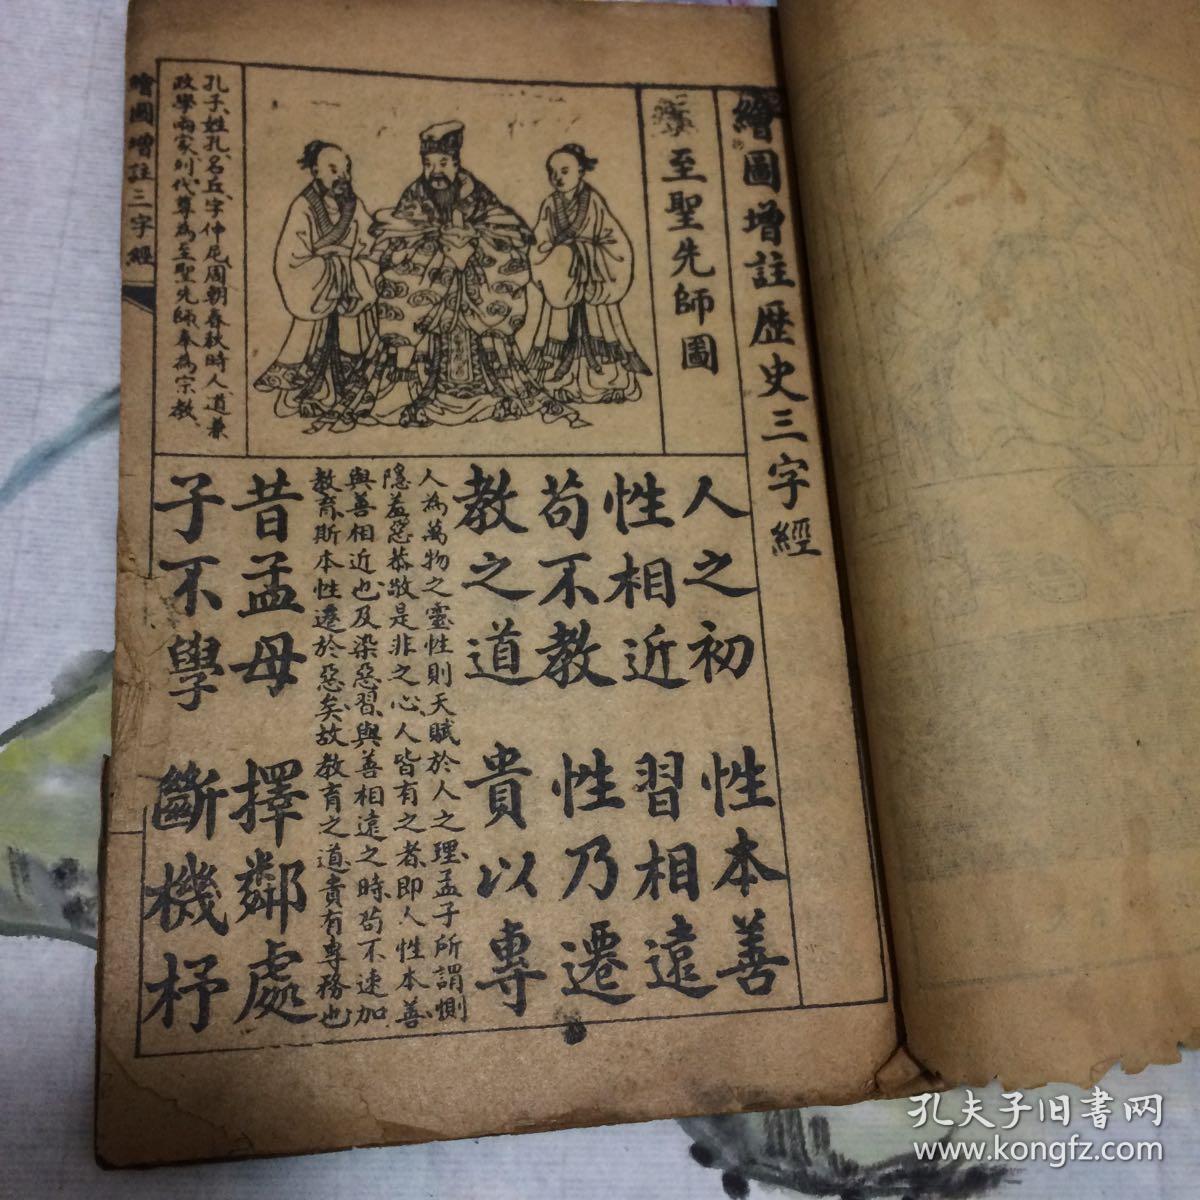 繪圖增註歷史三字經
至聖先師圖
孔子、姓孔、名丘、字仲尼、周朝春秋時人、道兼
政學兩家、列代尊為至聖先師、奉為宗教、
人之初　性本善
性相近　習相遠
苟不教　性乃遷
教之道　貴以專
人為萬物之靈、性則天賦於人之理、孟子所謂惻
隱羞惡恭敬是非之心、人皆有之者、即人性本善、
與善相近也、及染惡習、與善相遠之時、苟不速加
教育、斯本性遷於惡矣、故教育之道、貴有專務也
昔孟母　擇鄰處
子不學　斷機杼
繪圖增註三字經
孔夫子旧书网
www.kongfz.com